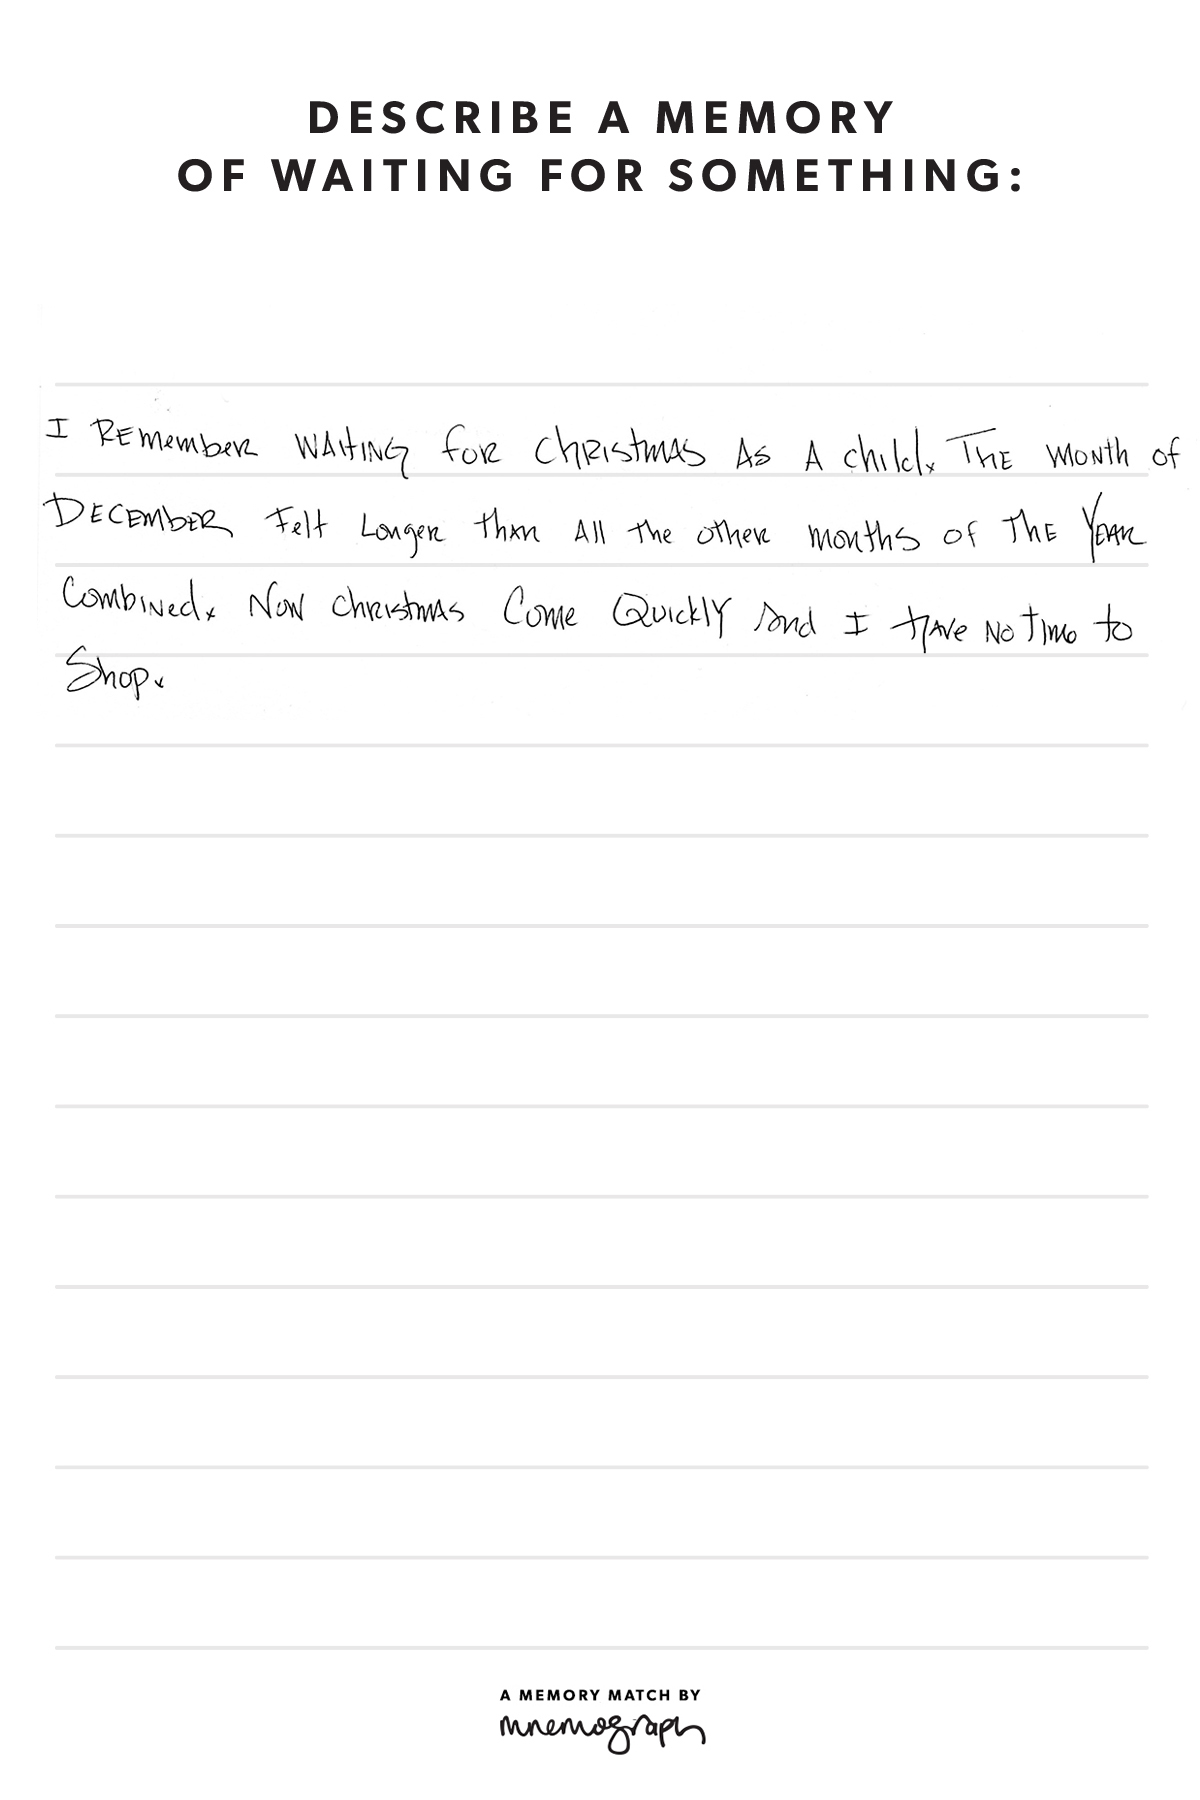 DESCRIBE A MEMORY
OF WAITING FOR SOMETHING:
I REmembeR WAITING foR ChRIstmAS AS A child. THE MONTH of
DECEMbER FElt LongeR thAn All the otheR months of THE YEAR
CombiNed. Now ChRistmAS Come QuicklY And I HAve No Time to
Shop.
A MEMORY MATCH BY
mnemograph